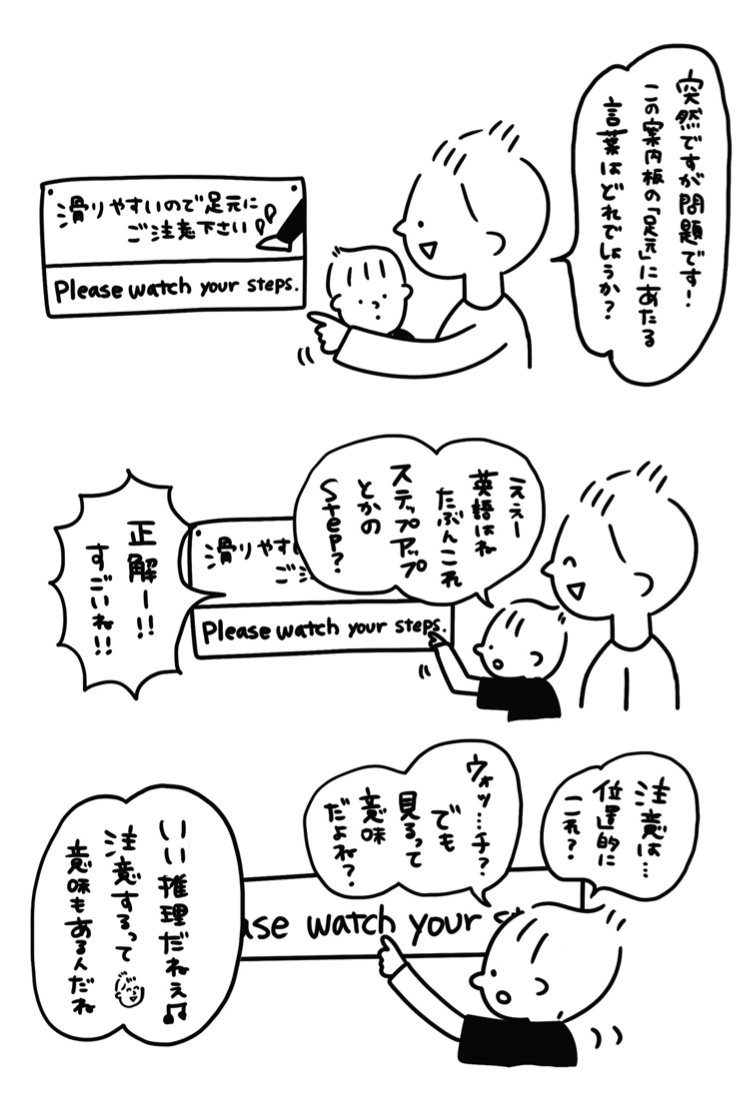 突然ですが問題です!
この案内板の「足元」にあたる
言葉はどれでしょうか?
滑りやすいので足元に
ご注意下さい
Please watch your steps.
ええー
英語はね
たぶんこれ
ステップアップ
とかの
Step?
滑りやす
ご
Please watch your steps.
正解ー!!
すごいね!!
注意は…
位置的に
これ?
ウォッ…チ?
でも
見るって
意味
だよね?
ase watch your s
いい推理だねぇ♫
注意するって
意味もあるんだね